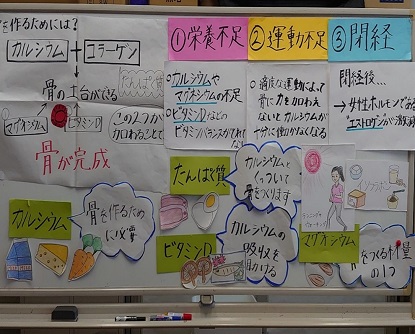 を作るためには?
カルシウム + コラーゲン
骨の土台ができる
たんぱく質
マグネシウム
ビタミンD
この2つが
加わることで
骨が完成
①栄養不足
・カルシウムや
マグネシウムの不足
・ビタミンDなどの
ビタミンバランスがとれてな
②運動不足
適度な運動によって
骨に力を加わえ
ないとカルシウムが
十分に働かなくなる
③閉経
閉経後…
→女性ホルモンであ
"エストロゲン"が激減
たんぱく質
カルシウムと
くっついて
骨をつくります
カルシウム
骨を作るため
に必要
ビタミンD
カルシウムの
吸収を
助ける
マグネシウム
をつくる材量
の1つ